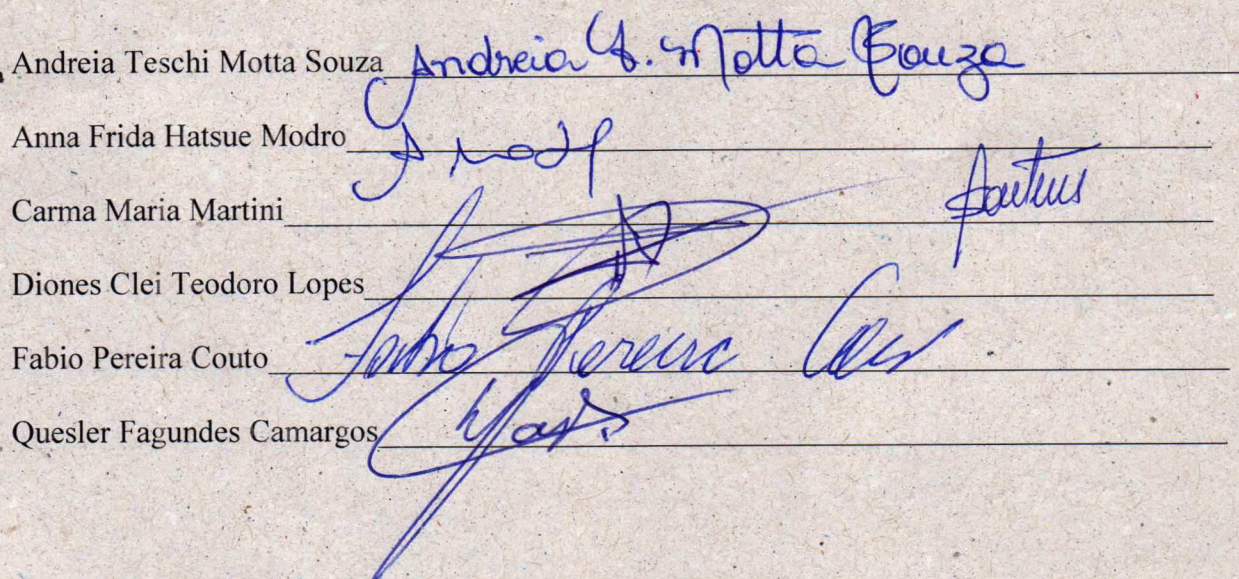 Andreia Teschi Motta Souza Andreia T. Motta Souza
Anna Frida Hatsue Modro
Carma Maria Martini
Diones Clei Teodoro Lopes
Fabio Pereira Couto Fabio Pereira
Quesler Fagundes Camargos